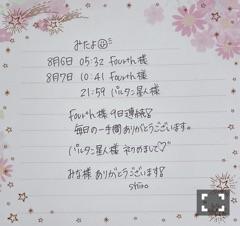 みたよ☺
8月6日 05:32 Fourth様
8月7日 10:41 Fourth様
21:59 バルタン星人様
Fourth様 9日連続!
毎日の一手間ありがとうございます。
バルタン星人様 初めまして♡
みな様 ありがとうございます!
shino